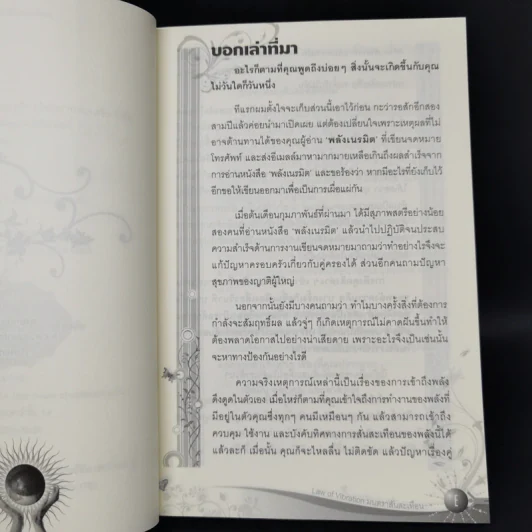 บอกเล่าที่มา
อะไรก็ตามที่คุณพูดถึงบ่อยๆ สิ่งนั้นจะเกิดขึ้นกับคุณ
ไม่วันใดก็วันหนึ่ง
ทีแรกผมตั้งใจจะเก็บส่วนนี้เอาไว้ก่อน กะว่ารอสักอีกสอง
สามปีแล้วค่อยนำมาเปิดเผย แต่ต้องเปลี่ยนใจเพราะเหตุผลที่ไม่
อาจต้านทานได้ของคุณผู้อ่าน 'พลังเนรมิต' ที่เขียนจดหมาย
โทรศัพท์ และส่งอีเมลล์มาหามากมายเหลือเกินถึงผลสำเร็จจาก
การอ่านหนังสือ 'พลังเนรมิต' และขอร้องว่า หากมีอะไรที่ยังเก็บไว้
อีกขอให้เขียนออกมาเพื่อเป็นการเผื่อแผ่กัน
เมื่อต้นเดือนกุมภาพันธ์ที่ผ่านมา ได้มีสุภาพสตรีอย่างน้อย
สองคนที่อ่านหนังสือ 'พลังเนรมิต' แล้วนำไปปฏิบัติจนประสบ
ความสำเร็จด้านการงานเขียนจดหมายมาถามว่าทำอย่างไรจึงจะ
แก้ปัญหาครอบครัวเกี่ยวกับคู่ครองได้ ส่วนอีกคนถามปัญหา
สุขภาพของญาติผู้ใหญ่
นอกจากนั้นยังมีบางคนถามว่า ทำไมบางครั้งสิ่งที่ต้องการ
กำลังจะสัมฤทธิ์ผล แล้วจู่ๆ ก็เกิดเหตุการณ์ไม่คาดฝันขึ้นทำให้
ต้องพลาดโอกาสไปอย่างน่าเสียดาย เพราะอะไรจึงเป็นเช่นนั้น
จะหาทางป้องกันอย่างไรดี
ความจริงเหตุการณ์เหล่านี้เป็นเรื่องของการเข้าถึงพลัง
ดึงดูดในตัวเอง เมื่อไหร่ก็ตามที่คุณเข้าใจถึงการทำงานของพลังที่
มีอยู่ในตัวคุณซึ่งทุกๆ คนมีเหมือนๆ กัน แล้วสามารถเข้าถึง
ควบคุม ใช้งาน และบังคับทิศทางการสั่นสะเทือนของพลังนี้ได้
แล้วละก็ เมื่อนั้น คุณก็จะไหลลื่น ไม่ติดขัด แล้วปัญหาเรื่องคู่
Law of Vibration